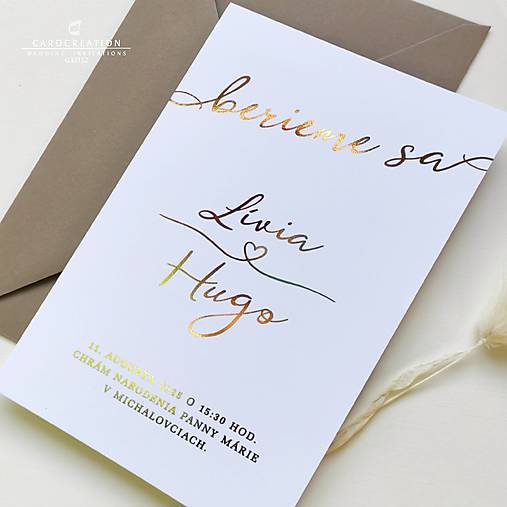 CARDCREATION
WEDDING INVITATIONS
berieme sa
Lívia
Hugo
11. AUGUSTA 2025 O 15:30 HOD.
CHRÁM NARODENIA PANNY MÁRIE
V MICHALOVCIACH.